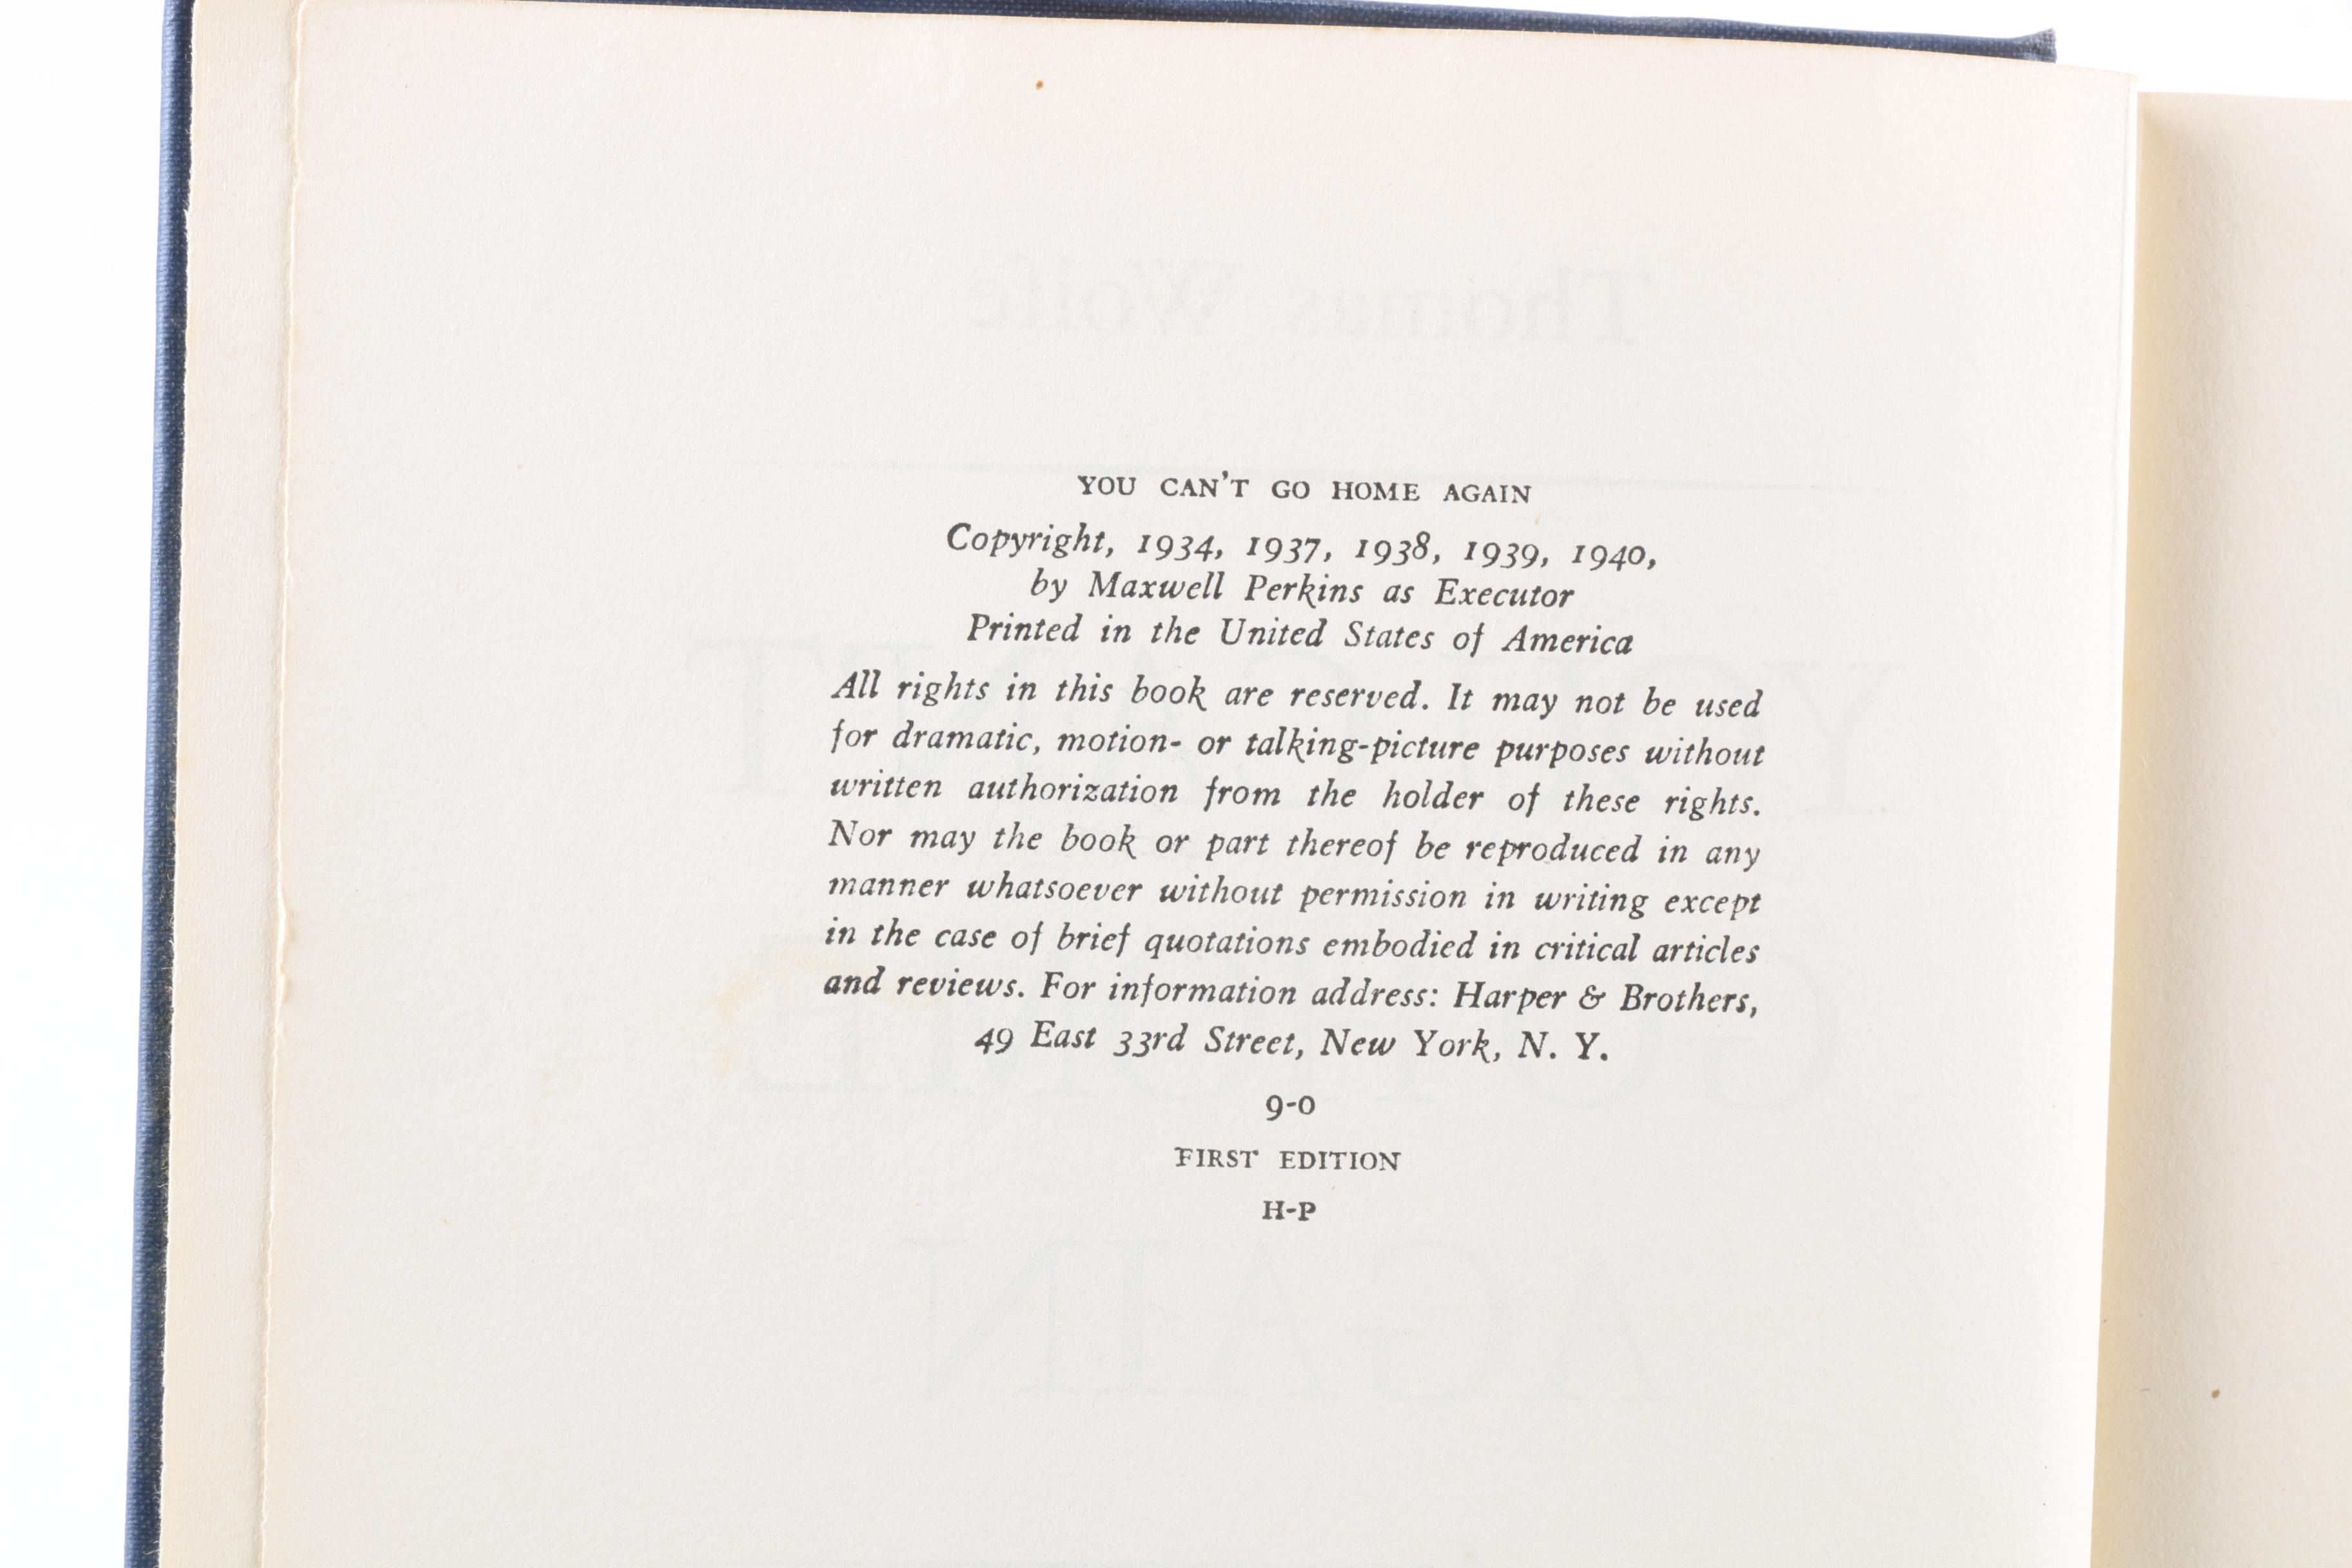 YOU CAN'T GO HOME AGAIN
Copyright, 1934, 1937, 1938, 1939, 1940,
by Maxwell Perkins as Executor
Printed in the United States of America
All rights in this book are reserved. It may not be used
for dramatic, motion- or talking-picture purposes without
written authorization from the holder of these rights.
Nor may the book or part thereof be reproduced in any
manner whatsoever without permission in writing except
in the case of brief quotations embodied in critical articles
and reviews. For information address: Harper & Brothers,
49 East 33rd Street, New York, N. Y.
9-0
FIRST EDITION
H-P